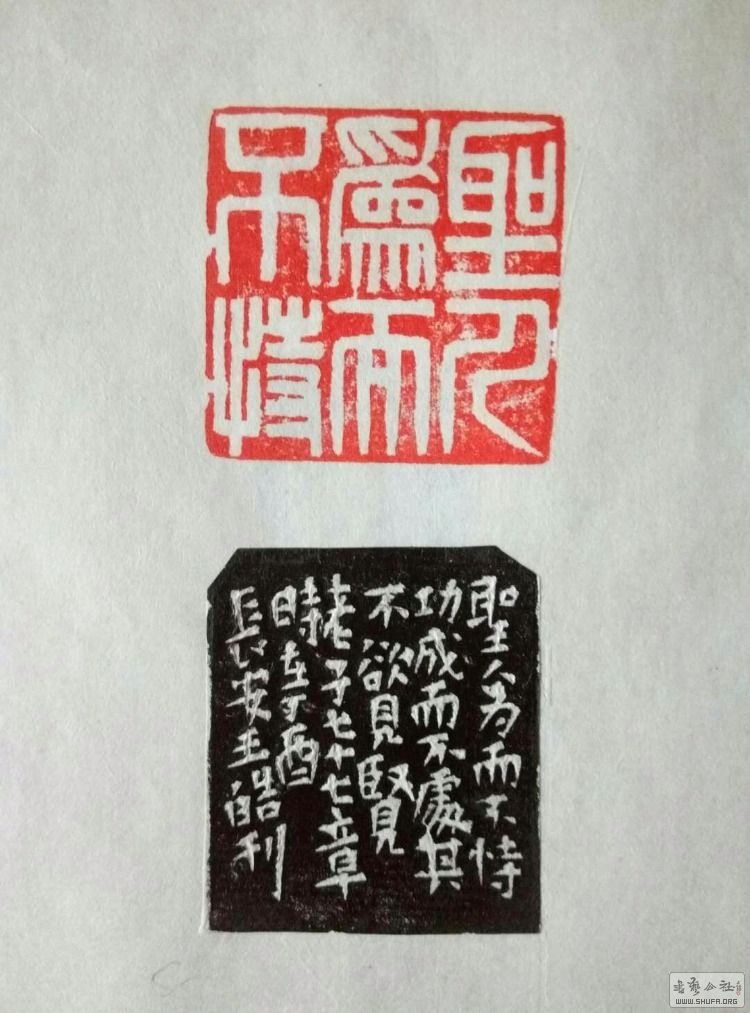 聖人
爲而
不恃
聖人为而不恃
功成而不處其
不欲見賢
老子七十七章
時在丁酉
長安王皓刊
书藝公社
WWW.SHUFA.ORG